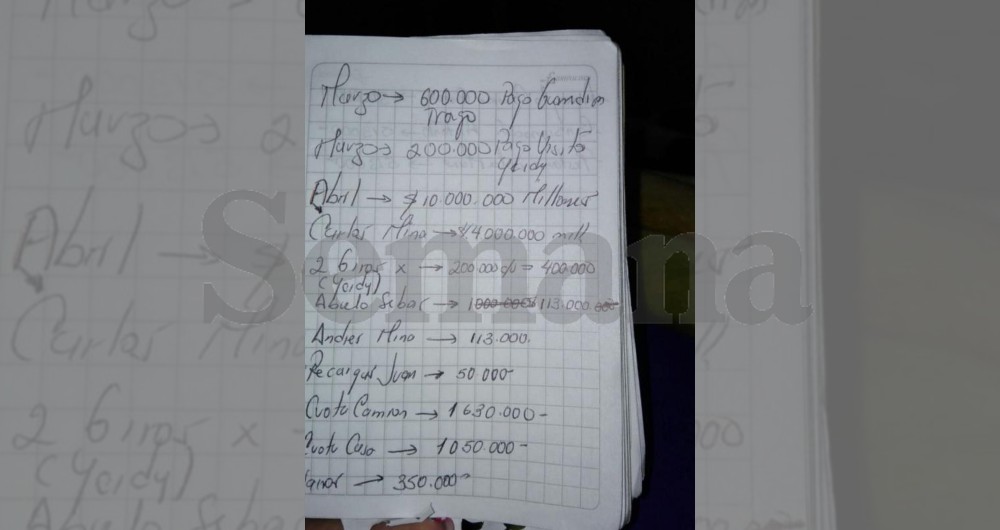 Marzo → 600.000 Pago Guardias
Trago
Marzo → 200.000 Pago Visita
Yeidy
Abril → $10.000.000 Millones
Carlos Mina → $4000.000 mill
2 Giros x → 200.000 c/u = 400.000
(Yeidy)
Abuelo Sebas → 113.000
Andres Mina → 113.000.
Recargas Juan → 50.000
Cuota Camion → 1630.000-
Cuota Casa → 1050.000-
→ 350.000
Semana